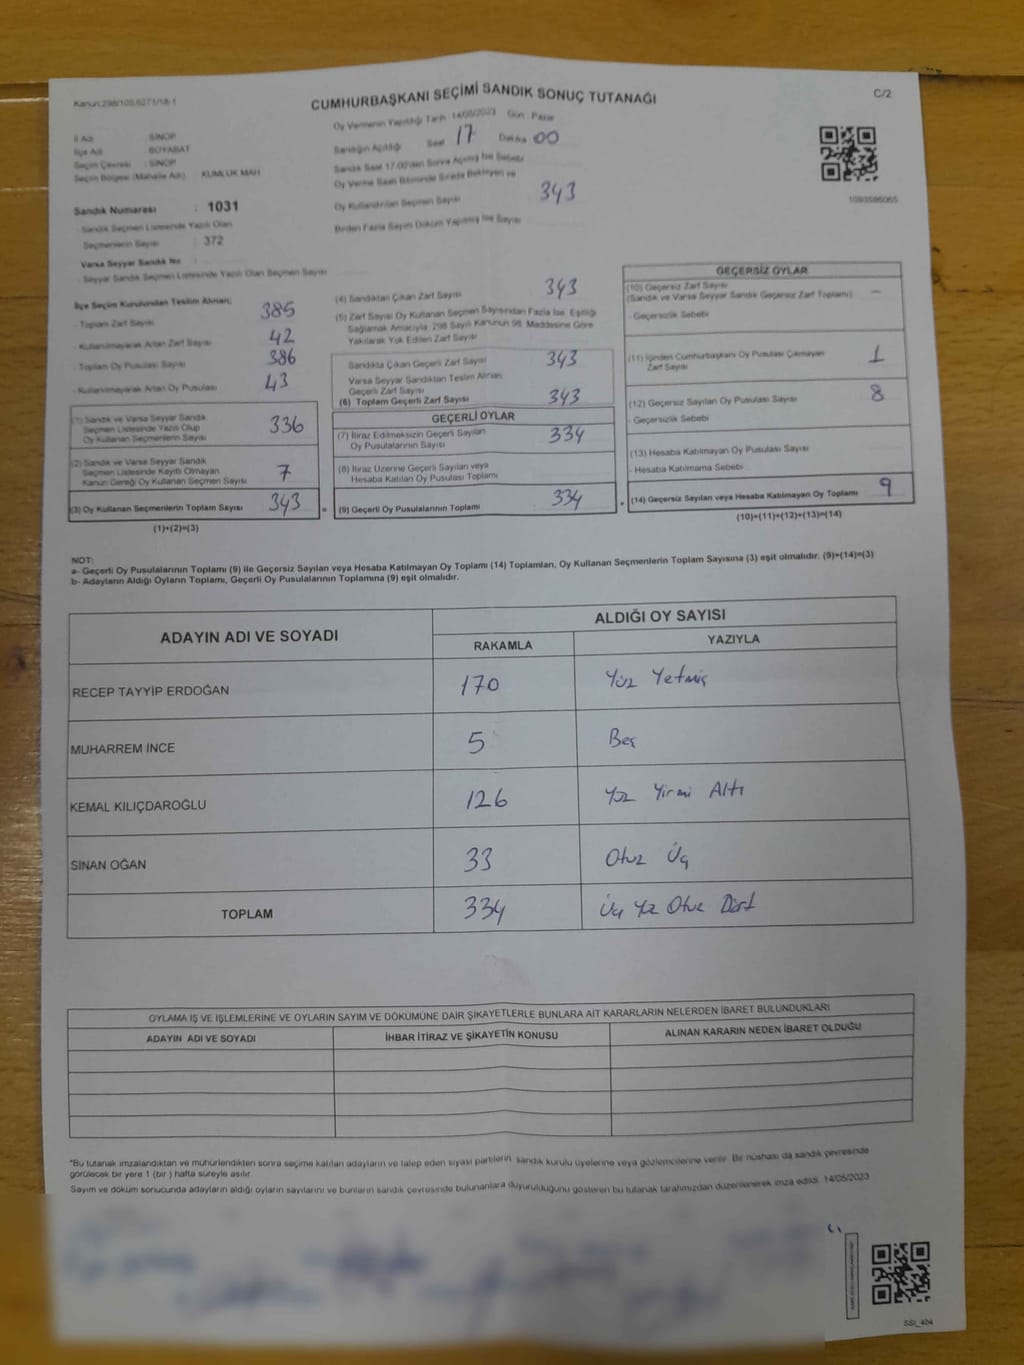 Kanun:298/105,6271/18-1
CUMHURBAŞKANI SEÇİMİ SANDIK SONUÇ TUTANAĞI
C/2
İl Adı : SİNOP
İlçe Adı : BOYABAT
Seçim Çevresi : SİNOP
Seçim Bölgesi (Mahalle Adı) : KUMLUK MAH
Sandık Numarası : 1031
- Sandık Seçmen Listesinde Yazılı Olan
Seçmenlerin Sayısı : 372
Varsa Seyyar Sandık No
- Seyyar Sandık Seçmen Listesinde Yazılı Olan Seçmen Sayısı
Oy Vermenin Yapıldığı Tarih 14/05/2023 Gün : Pazar
Sandığın Açıldığı Saat 17 Dakika 00
Sandık Saat 17.00'den Sonra Açılmış İse Sebebi
Oy Verme Saati Bitiminde Sırada Bekleyen ve
Oy Kullandırılan Seçmen Sayısı 343
Birden Fazla Sayım Döküm Yapılmış İse Sayısı
1093586065
İlçe Seçim Kurulundan Teslim Alınan;
- Toplam Zarf Sayısı 385
- Kullanılmayarak Artan Zarf Sayısı 42
- Toplam Oy Pusulası Sayısı 386
- Kullanılmayarak Artan Oy Pusulası 43
(1) Sandık ve Varsa Seyyar Sandık
Seçmen Listesinde Yazılı Olup
Oy Kullanan Seçmenlerin Sayısı 336
(2) Sandık ve Varsa Seyyar Sandık
Seçmen Listesinde Kayıtlı Olmayan
Kanun Gereği Oy Kullanan Seçmen Sayısı 7
(3) Oy Kullanan Seçmenlerin Toplam Sayısı 343
(1)+(2)=(3)
=
(4) Sandıktan Çıkan Zarf Sayısı 343
(5) Zarf Sayısı Oy Kullanan Seçmen Sayısından Fazla İse, Eşitliği
Sağlamak Amacıyla, 298 Sayılı Kanunun 98. Maddesine Göre
Yakılarak Yok Edilen Zarf Sayısı
Sandıkta Çıkan Geçerli Zarf Sayısı 343
Varsa Seyyar Sandıktan Teslim Alınan
Geçerli Zarf Sayısı
(6) Toplam Geçerli Zarf Sayısı 343
GEÇERLİ OYLAR
(7) İtiraz Edilmeksizin Geçerli Sayılan
Oy Pusulalarının Sayısı 334
(8) İtiraz Üzerine Geçerli Sayılan veya
Hesaba Katılan Oy Pusulası Toplamı
(9) Geçerli Oy Pusulalarının Toplamı 334
+
GEÇERSİZ OYLAR
(10) Geçersiz Zarf Sayısı
(Sandık ve Varsa Seyyar Sandık Geçersiz Zarf Toplamı) —
- Geçersizlik Sebebi
(11) İçinden Cumhurbaşkanı Oy Pusulası Çıkmayan
Zarf Sayısı 1
(12) Geçersiz Sayılan Oy Pusulası Sayısı 8
- Geçersizlik Sebebi
(13) Hesaba Katılmayan Oy Pusulası Sayısı
- Hesaba Katılmama Sebebi
(14) Geçersiz Sayılan veya Hesaba Katılmayan Oy Toplamı 9
(10)+(11)+(12)+(13)=(14)
NOT:
a- Geçerli Oy Pusulalarının Toplamı (9) ile Geçersiz Sayılan veya Hesaba Katılmayan Oy Toplamı (14) Toplamları, Oy Kullanan Seçmenlerin Toplam Sayısına (3) eşit olmalıdır. (9)+(14)=(3)
b- Adayların Aldığı Oyların Toplamı, Geçerli Oy Pusulalarının Toplamına (9) eşit olmalıdır.
ADAYIN ADI VE SOYADI
ALDIĞI OY SAYISI
RAKAMLA YAZIYLA
RECEP TAYYİP ERDOĞAN 170 Yüz Yetmiş
MUHARREM İNCE 5 Beş
KEMAL KILIÇDAROĞLU 126 Yüz Yirmi Altı
SİNAN OĞAN 33 Otuz Üç
TOPLAM 334 Üç Yüz Otuz Dört
OYLAMA İŞ VE İŞLEMLERİNE VE OYLARIN SAYIM VE DÖKÜMÜNE DAİR ŞİKAYETLERLE BUNLARA AİT KARARLARIN NELERDEN İBARET BULUNDUKLARI
ADAYIN ADI VE SOYADI İHBAR İTİRAZ VE ŞİKAYETİN KONUSU ALINAN KARARIN NEDEN İBARET OLDUĞU
*Bu tutanak imzalandıktan ve mühürlendikten sonra seçime katılan adayların ve talep eden siyasi partilerin sandık kurulu üyelerine veya gözlemcilerine verilir. Bir nüshası da sandık çevresinde
görülecek bir yere 1 (bir ) hafta süreyle asılır.
Sayım ve döküm sonucunda adayların aldığı oyların sayılarını ve bunların sandık çevresinde bulunanlara duyurulduğunu gösteren bu tutanak tarafımızdan düzenlenerek imza edildi. 14/05/2023
SSI_404